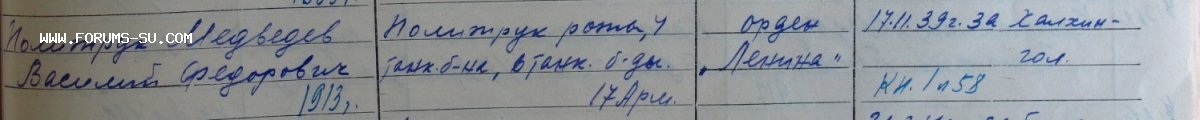 www.forums-su.com
Политрук Медведев
Василий Федорович
1913г.
Политрук роты, 4
танк. б-на, 6 танк. б-ды.
17 Арм.
орден
„Ленина"
17.11.39г. за Халхин-
гол.
Кн. 1 л 58